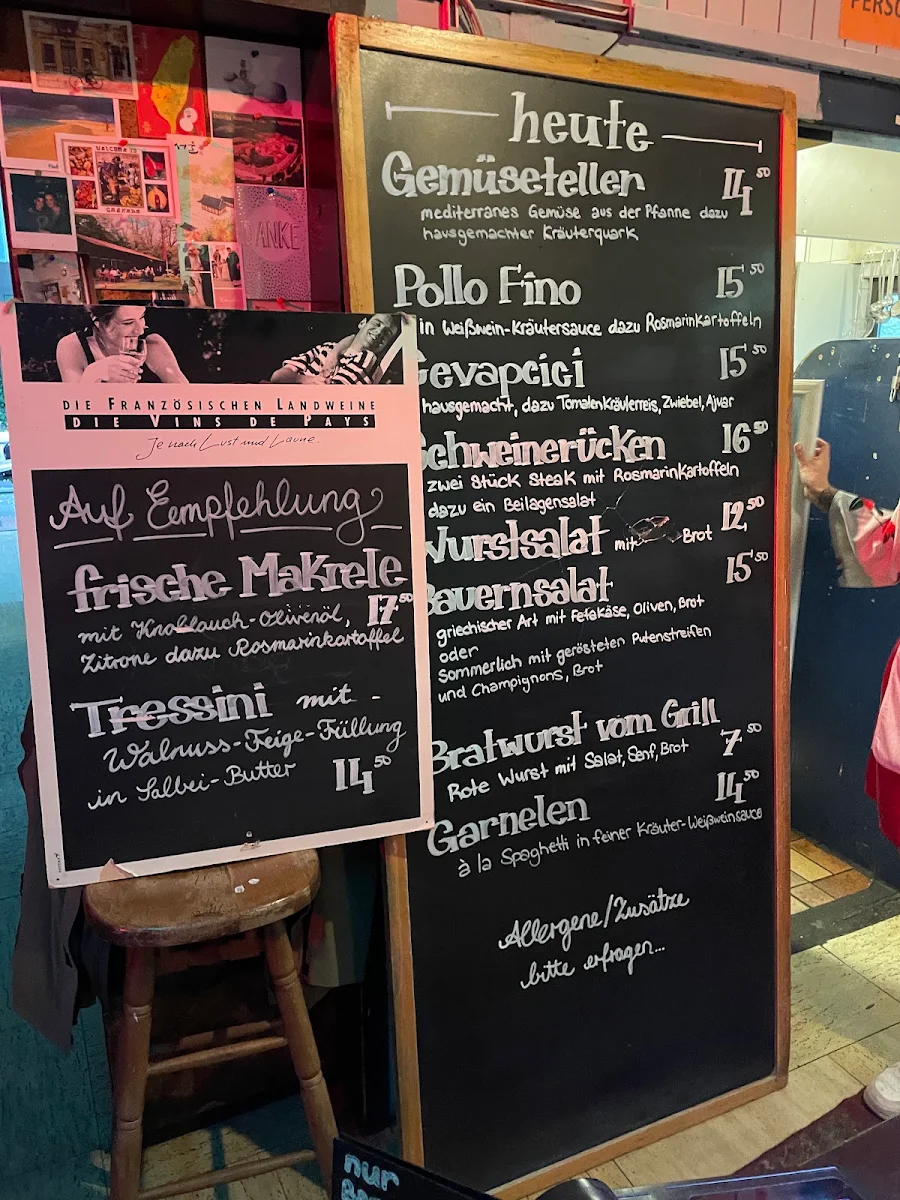 PERSO
heute
Gemüseteller 14,50
mediterranes Gemüse aus der Pfanne dazu
hausgemachter Kräuterquark
Pollo Fino 15,50
in Weißwein-Kräutersauce dazu Rosmarinkartoffeln
Cevapcici 15,50
hausgemacht, dazu Tomatenkräuterreis, Zwiebel, Ajvar
Schweinerücken 16,50
zwei Stück Steak mit Rosmarinkartoffeln
dazu ein Beilagensalat
Wurstsalat mit Brot 12,50
Bauernsalat 15,50
griechischer Art mit Fetakäse, Oliven, Brot
oder
Sommerlich mit gerösteten Putenstreifen
und Champignons, Brot
Bratwurst vom Grill 7,50
Rote Wurst mit Salat, Senf, Brot
Garnelen 14,50
à la Spaghetti in feiner Kräuter-Weißweinsauce
Allergene/Zusätze
bitte erfragen...
DANKE
DIE FRANZÖSISCHEN LANDWEINE
DIE VINS DE PAYS
Je nach Lust und Laune.
Auf Eempfehlung
frische Makrele
mit Knoblauch-Olivenöl, 17,50
Zitrone dazu Rosmarinkartoffel
Tressini mit -
Walnuss-Feige-Füllung
in Salbei-Butter 14,50
nur